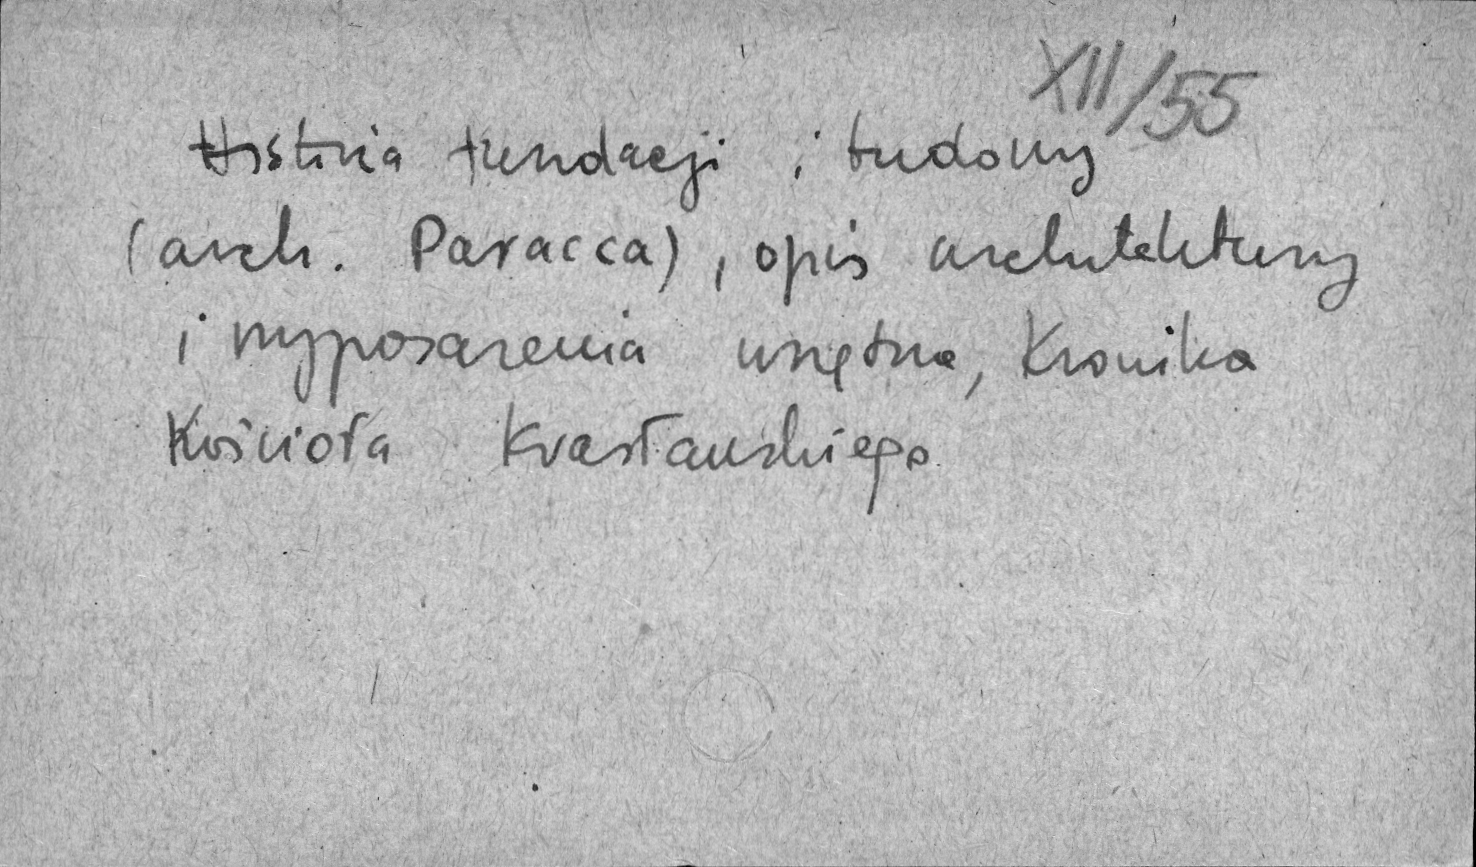 XII/55
Historia fundacji i budowy
(arch. Paracca), opis architektury
i wyposażenia wnętrza, Kronika
Kościoła Krasławskiego